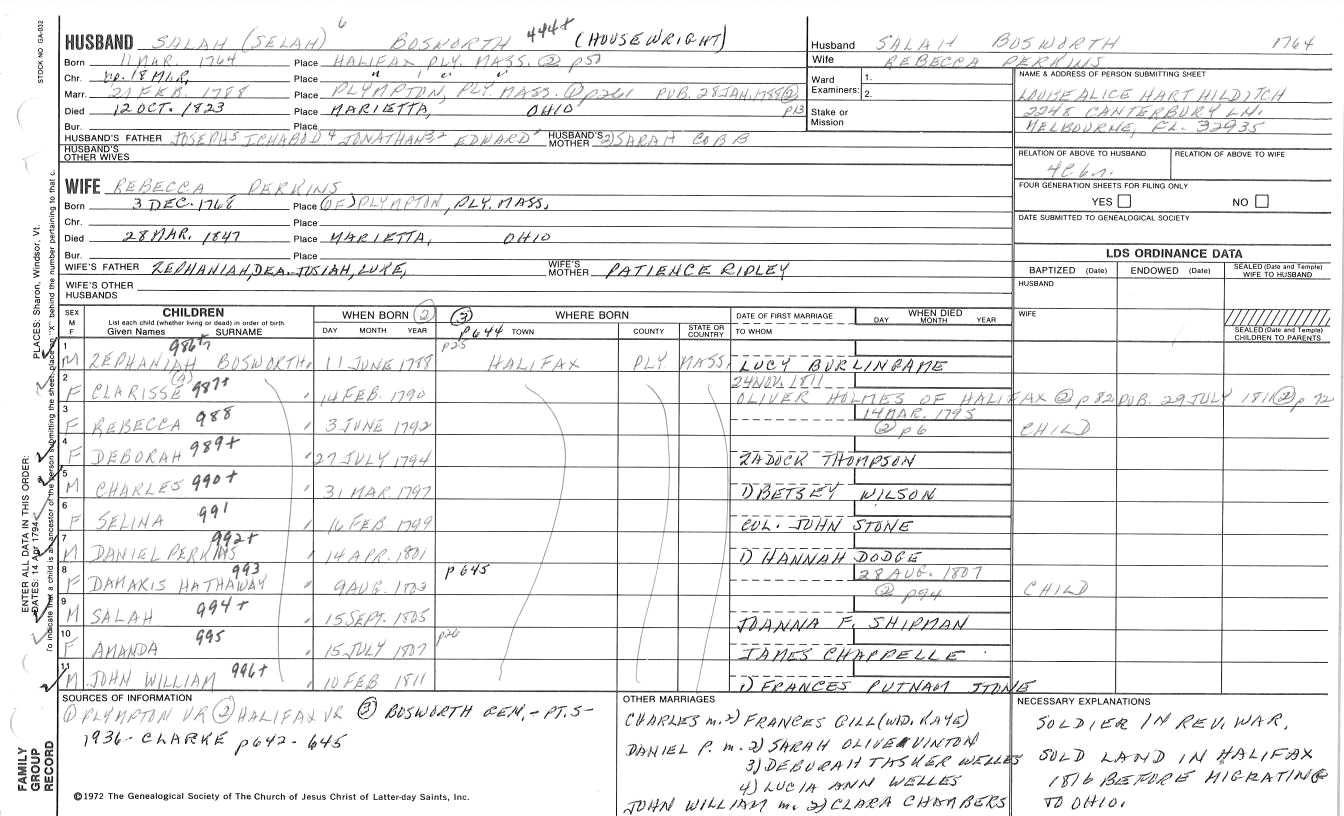 6
HUSBAND SALAH (SELAH) BOSWORTH 444+ (HOUSEWRIGHT)
Born 11 MAR. 1764 Place HALIFAX PLY. MASS. ② p57
Chr. 18 MAR, Place " " " "
Marr. 21 FEB. 1788 Place PLYMPTON, PLY. MASS. ① p261 PUB. 28 JAN. 1788 ②
Died 12 OCT. 1823 Place MARIETTA, OHIO p13
Bur. Place
HUSBAND'S FATHER JOSEPH5 ICHABOD4 JONATHAN3,2 EDWARD1 HUSBAND'S MOTHER 2) SARAH COBB
HUSBAND'S OTHER WIVES
Husband SALAH BOSWORTH 1764
Wife REBECCA PERKINS
Ward Examiners: 1.
2.
Stake or Mission
NAME & ADDRESS OF PERSON SUBMITTING SHEET
LOUISE ALICE HART HILDITCH
2248 CANTERBURY LN.
MELBOURNE, FL. 32935
RELATION OF ABOVE TO HUSBAND RELATION OF ABOVE TO WIFE
4C 6r.
FOUR GENERATION SHEETS FOR FILING ONLY
YES NO
DATE SUBMITTED TO GENEALOGICAL SOCIETY
WIFE REBECCA PERKINS
Born 3 DEC. 1768 Place (OF) PLYMPTON, PLY. MASS,
Chr. Place
Died 28 MAR. 1847 Place MARIETTA, OHIO
Bur. Place
WIFE'S FATHER ZEPHANIAH, DEA. JOSIAH, LUKE, WIFE'S MOTHER PATIENCE RIPLEY
WIFE'S OTHER HUSBANDS
LDS ORDINANCE DATA
BAPTIZED (Date) ENDOWED (Date) SEALED (Date and Temple) WIFE TO HUSBAND
HUSBAND
WIFE
SEALED (Date and Temple) CHILDREN TO PARENTS
SEX M F
CHILDREN
List each child (whether living or dead) in order of birth
Given Names SURNAME
WHEN BORN ②
DAY MONTH YEAR
③ WHERE BORN
p644 TOWN COUNTY STATE OR COUNTRY
DATE OF FIRST MARRIAGE
TO WHOM
WHEN DIED
DAY MONTH YEAR
1 M ZEPHANIAH BOSWORTH 986+ 11 JUNE 1788 p25 HALIFAX PLY MASS. LUCY BURLINGAME
2 F CLARISSE (A) 987+ 14 FEB. 1790 24 NOV. 1811
OLIVER HOLMES OF HALIFAX ② p82 PUB. 29 JULY 1811 ② p 72
3 F REBECCA 988 3 JUNE 1792 14 MAR. 1795
② p6 CHILD
4 F DEBORAH 989+ 27 JULY 1794 ZADOCK THOMPSON
5 M CHARLES 990+ 31 MAR 1797 1) BETSEY WILSON
6 F SELINA 991 16 FEB 1799 COL. JOHN STONE
7 M DANIEL PERKINS 992+ 14 APR. 1801 1) HANNAH DODGE
8 F DAMARIS HATHAWAY 993 9 AUG. 1803 p645 28 AUG. 1807
② p94 CHILD
9 M SALAH 994+ 15 SEPT. 1805 JOANNA F. SHIPMAN
10 F AMANDA 995 15 JULY 1807 p26 JAMES CHAPPELLE
11 M JOHN WILLIAM 996+ 10 FEB 1811 1) FRANCES PUTNAM STONE
SOURCES OF INFORMATION
① PLYMPTON VR ② HALIFAX VR ③ BOSWORTH GEN. - PT. 5 -
1936 - CLARKE p642 - 645
OTHER MARRIAGES
CHARLES m. 2) FRANCES GILL (WD. KAYE)
DANIEL P. m. 2) SARAH OLIVE VINTON
3) DEBORAH TASKER WELLES
4) LUCIA ANN WELLES
JOHN WILLIAM m. 2) CLARA CHAMBERS
NECESSARY EXPLANATIONS
SOLDIER IN REV. WAR.
SOLD LAND IN HALIFAX
1816 BEFORE MIGRATING
TO OHIO.
©1972 The Genealogical Society of The Church of Jesus Christ of Latter-day Saints, Inc.
STOCK NO. GA-032
PLACES: Sharon, Windsor, Vt.
ENTER ALL DATA IN THIS ORDER:
DATES: 14 Apr 1794
To indicate that a child is an ancestor of the person submitting the sheet, place an "X" behind the number pertaining to that c.
FAMILY GROUP RECORD